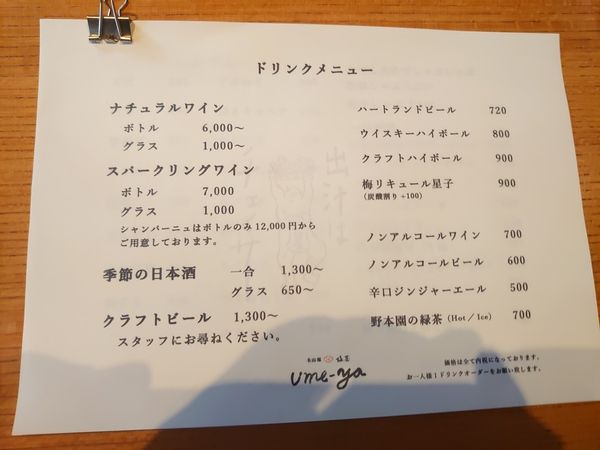 ドリンクメニュー
ナチュラルワイン
ボトル 6,000〜
グラス 1,000〜
スパークリングワイン
ボトル 7,000
グラス 1,000
シャンパーニュはボトルのみ 12,000 円から
ご用意しております。
季節の日本酒 一合 1,300〜
グラス 650〜
クラフトビール 1,300〜
スタッフにお尋ねください。
ハートランドビール 720
ウイスキーハイボール 800
クラフトハイボール 900
梅リキュール星子 900
(炭酸割り +100)
ノンアルコールワイン 700
ノンアルコールビール 600
辛口ジンジャーエール 500
野本園の緑茶 (Hot / Ice) 700
価格は全て内税になっております。
お一人様 1 ドリンクオーダーをお願い致します。
ume-ya